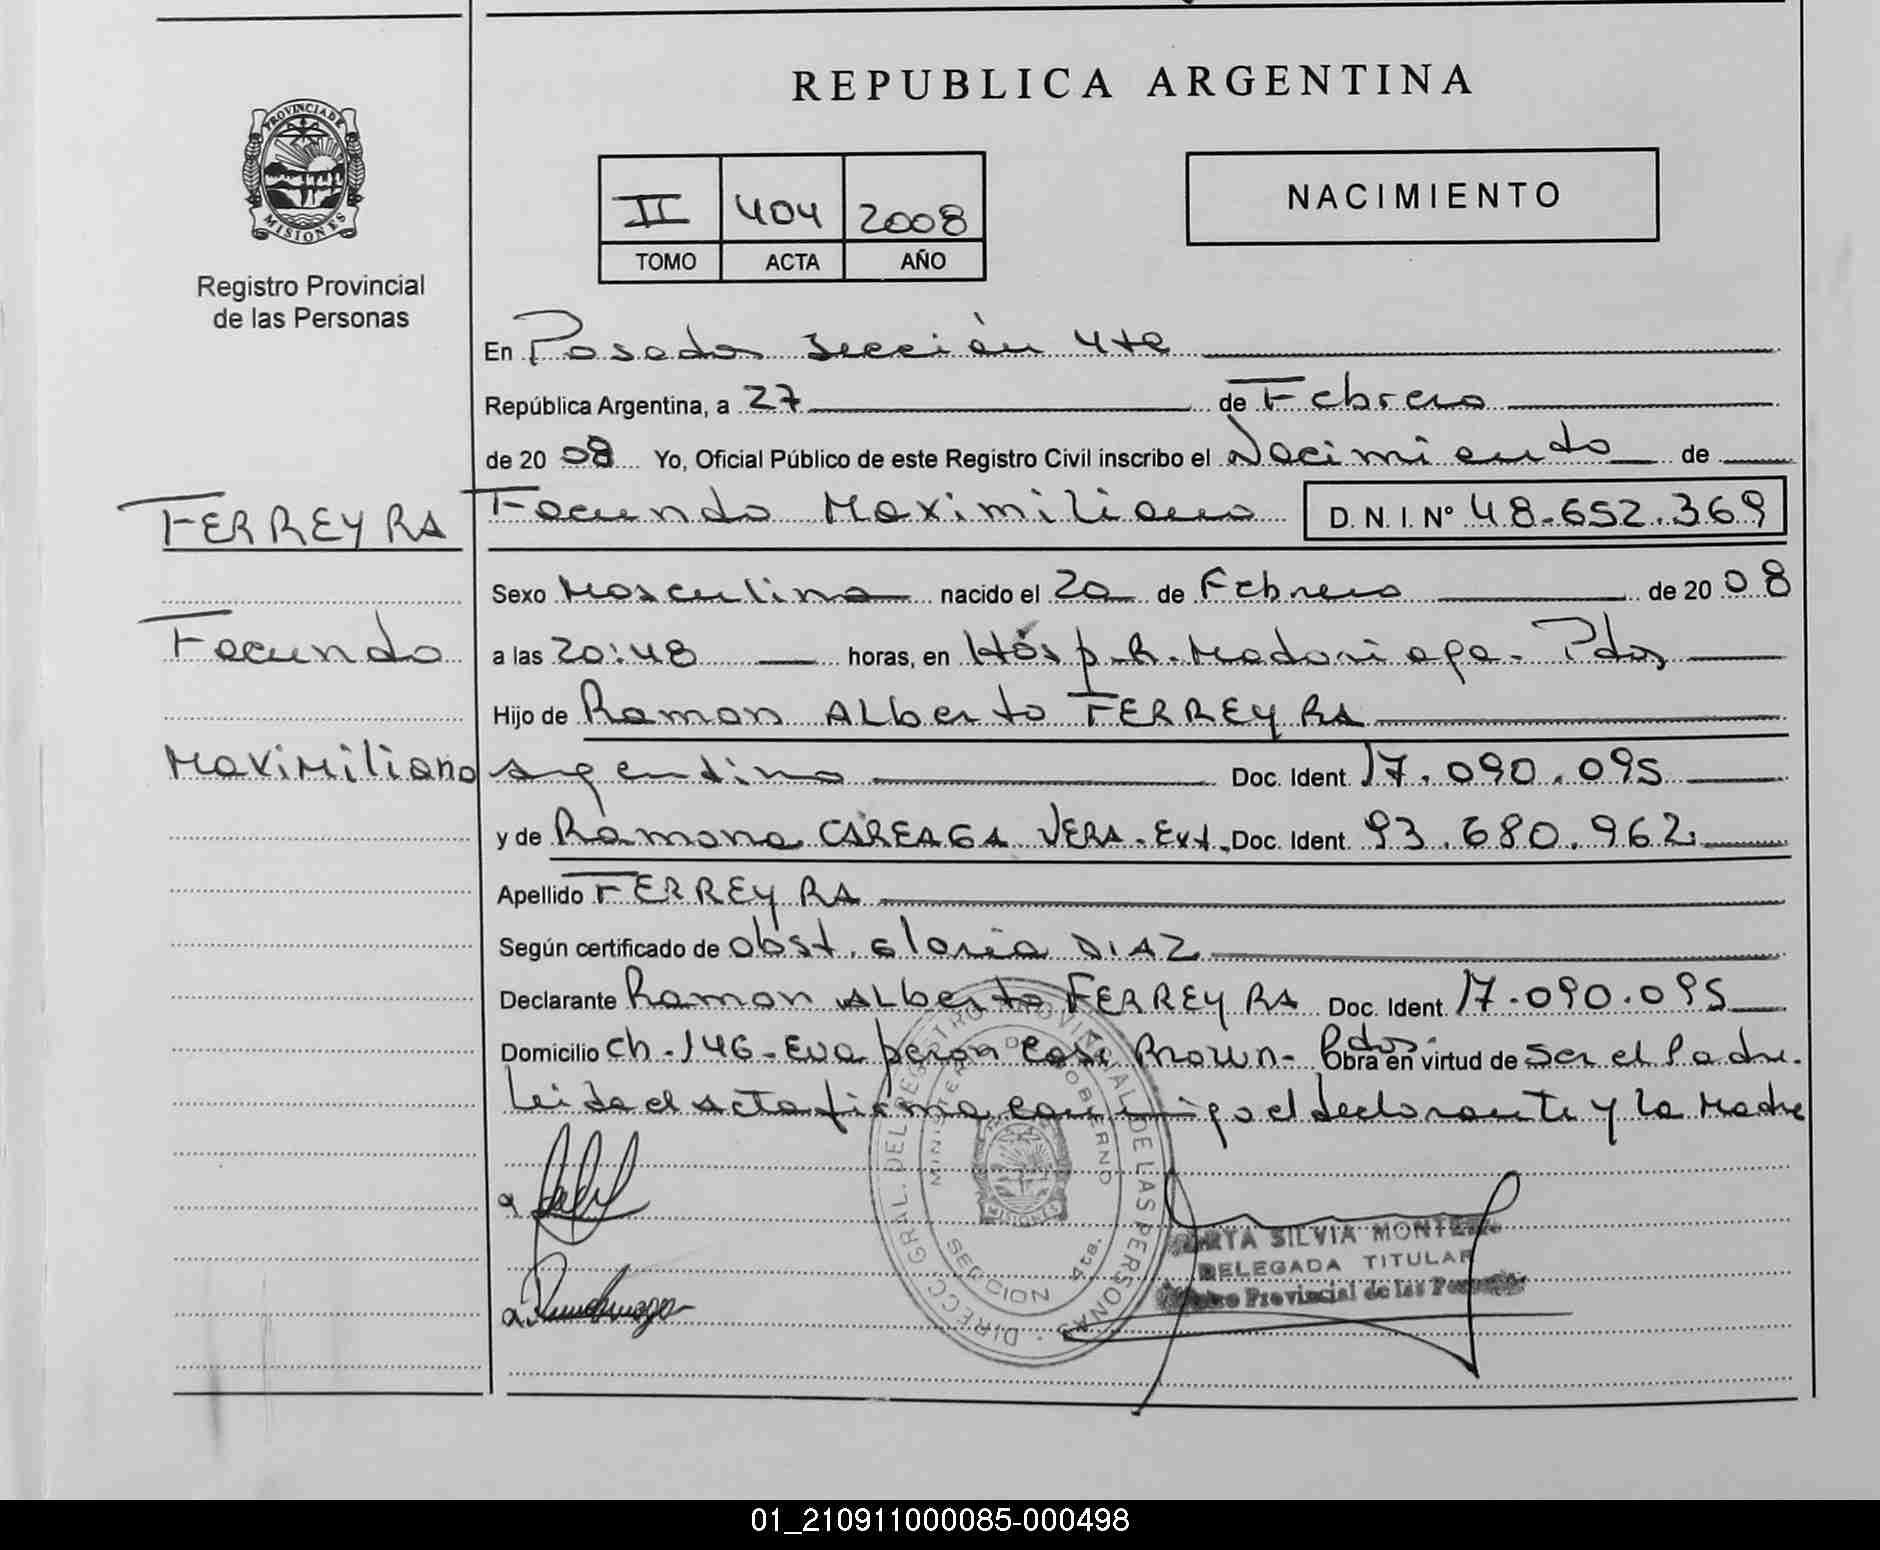 REPUBLICA ARGENTINA
PROVINCIA DE
MISIONES
Registro Provincial
de las Personas
II 404 2008
TOMO ACTA AÑO
NACIMIENTO
En Posadas Sección 4ta
República Argentina, a 27 de Febrero
de 2008 Yo, Oficial Público de este Registro Civil inscribo el Nacimiento de
FERREYRA
Facundo
Maximiliano
Facundo Maximiliano D. N. I. Nº 48.652.369
Sexo Masculino nacido el 20 de Febrero de 2008
a las 20:48 horas, en Hosp. R. Madariaga - Pdas
Hijo de Ramon Alberto FERREYRA
argentino Doc. Ident. 17.090.095
y de Ramona CAREAGA VERA - Ext. Doc. Ident. 93.680.962
Apellido FERREYRA
Según certificado de obst. Gloria DIAZ
Declarante Ramon Alberto FERREYRA Doc. Ident. 17.090.095
Domicilio ch - 146 - Eva peron casi Brown - Pdas Obra en virtud de ser el Padre.
Leida el acta firma conmigo el declarante y la Madre
DIRECC. GRAL. DEL REGISTRO PROVINCIAL DE LAS PERSONAS
MINISTERIO DE GOBIERNO
MISIONES
SECCION 4ta.
SILVIA
DELEGADA TITULAR
Provincial de las
01_210911000085-000498